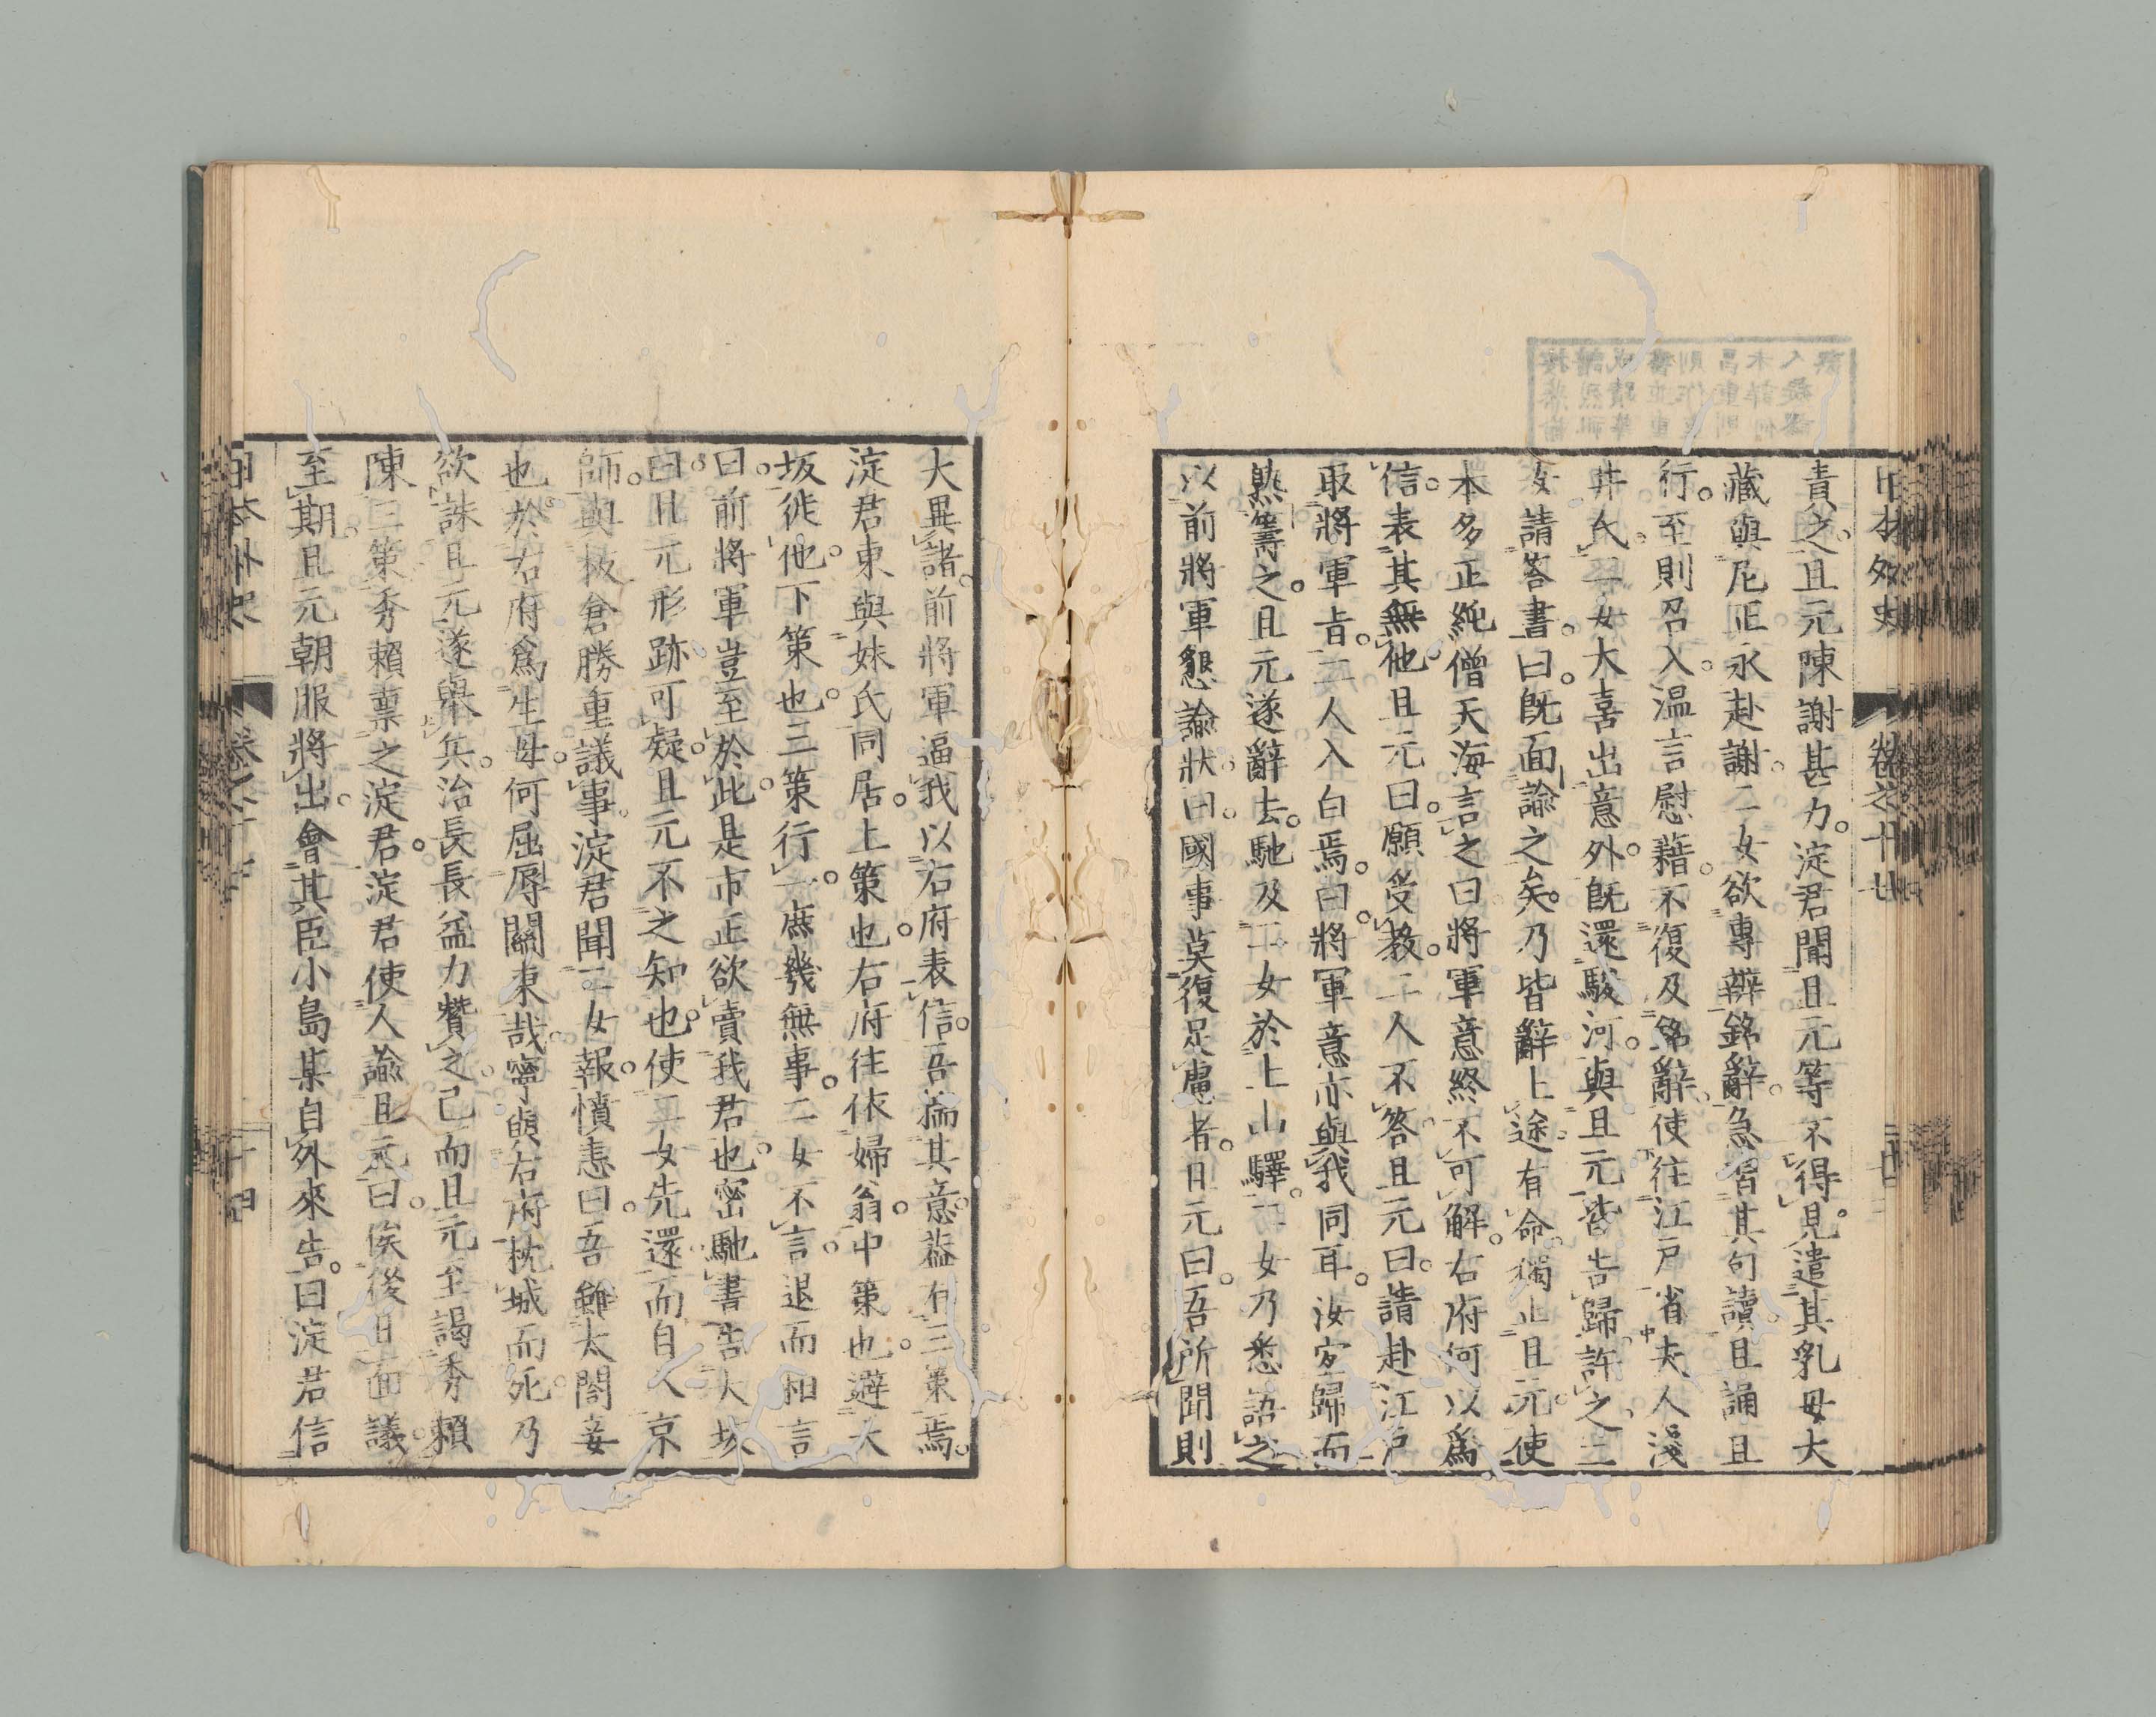 日本外史 卷之二十
責之。且元陳謝甚力。淀君聞且元等不得見。遣其乳母大
藏與尼正永赴謝。二女欲專辨銘辭。急習其句讀。且誦且
行。至則召入。溫言慰藉。不復及銘辭。使往江戶省夫人淺
井氏。二女大喜出意外。既還駿河。與且元皆告歸。許之。二
女請答書。曰。既面諭之矣。乃皆辭上途。有命。獨止且元。使
本多正純僧天海言之曰將軍意終不可解。右府何以爲
信。表其無他。且元曰。願受教。二人不答。且元曰。請赴江戶
取將軍旨。二人入白焉。曰。將軍意亦與我同耳。汝宜歸而
熟籌之。且元遂辭去。馳及二女於土山驛。二女乃悉語之
以前將軍懇諭狀。曰。國事莫復足慮者。且元曰。吾所聞則
大異諸。前將軍逼我以右府表信。吾揣其意。蓋有三策焉。
淀君東與妹氏同居。上策也。右府往依婦翁。中策也。避大
坂徙他。下策也。三策行一。庶幾無事。二女不言。退而相言
曰。前將軍豈至於此。是市正欲賣我君也。密馳書告大坂
曰。且元形跡可疑。且元不之知也。使二女先還。而自入京
師。與板倉勝重議事。淀君聞二女報。憤恚曰。吾雖太閤妾
也。於右府爲生母。何屈辱關東哉。寧與右府枕城而死。乃
欲誅且元。遂舉兵。治長長益力贊之。已而且元至。謁秀賴
陳三策。秀賴稟之淀君。淀君使人諭且元曰。俟後日面議。
至期。且元朝服將出。會其臣小島某自外來告。曰淀君信
日本外史 卷之二十 十四